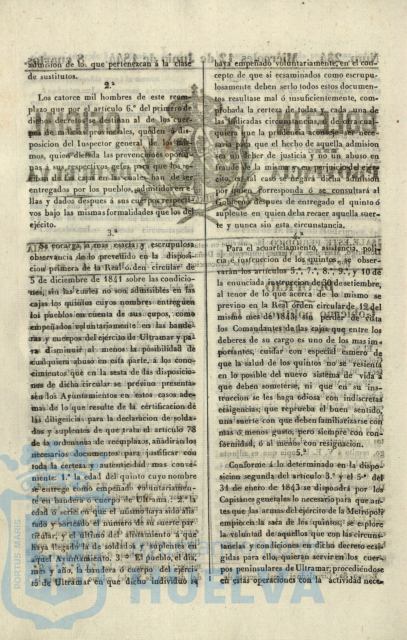 admision de los que pertenezcan á la clase
de sustitutos.
2.ª
Los catorce mil hombres de este reem-
plazo que por el artículo 6.º del primero de
dichos decretos se destinan al de los cuer-
pos de milicias provinciales, queden á dis-
posicion del Inspector general de las mis-
mos, quien dictará las prevenciones oportu-
nas á sus respectivos gefes, para que los
les han de ser
entregados por los pueblos, admitidos en e-
llas y dados despues á sus cuerpos respecti-
vos bajo las mismas formalidades que los del
ejército.
3.ª
Se encarga la mas exacta y escrupulosa
observancia de lo prevenido en la disposi-
cion primera de la Real órden circular de
5 de diciembre de 1841 sobre las condicio-
nes, sin las cuales no son admisibles en las
cajas los quintos cuyos nombres entreguen
los pueblos en cuenta de sus cupos, como
empeñados voluntariamente en las bande-
ras y cuerpos del ejército de Ultramar y pa-
ra disminuir al menos la posibilidad de
cualquiera abuso en esta parte, á los cono-
cimientos que en la sesta de las disposicio-
nes de dicha circular se previno presenta-
sen los Ayuntamientos en estos casos ade-
mas de lo que resulte de la certificacion de
las diligencias para la declaracion de solda-
dos y suplentes de que trata el artículo 78
de la ordenanza de reemplazos, añadirán los
necesarios documentos para justificar con
toda la certeza y autenticidad mas conve-
niente. 1.º la edad del quinto cuyo nombre
se entrega como empeñado voluntariamen-
te en bandera ó cuerpo de Ultramar: 2.º la
edad ó serie en que el mismo haya sido alis-
tado y sorteado el número de su suerte par-
ticular, y el último del alistamiento á que
haya llegado la de soldados y suplentes en
aquel Ayuntamiento. 3.º El pueblo, el dia,
mes y año, la bandera ó cuerpo del ejérci-
to de Ultramar en que dicho individuo se
haya empeñado voluntariamente, en el con-
cepto de que si ecsaminados como escrupu-
losamente deben serlo todos estos documen-
tos resultase mal ó insuficientemente, com-
probada la certeza de todas y cada una de
las indicadas circunstancias, ó de otra cual-
quiera que la prudencia aconseje
rio, para que el hecho de aquella admision
sea un deber de justicia y no un abuso en
fraude de la misma y en perjuicio de terce-
ro, en tal caso se negará dicha admision
por quien corresponda ó se consultará al
Gobierno despues de entregado el quinto ó
suplente en quien deba recaer aquella suer-
te y nunca sin esta circunstancia.
4.ª
Para el acuartelamiento, asistencia, poli-
cía é instruccion de los quintos, se obser-
varán los artículos 5.º, 7.º, 8.º, 9.º, y 10 de
la enunciada instruccion de 30 de setiembre,
al tenor de lo que acerca de lo mismo se
previno en la Real órden circular de 19 del
mismo mes de 1843, sin perder de vista
los Comandantes de las cajas que entre los
deberes de su cargo es uno de los mas im-
portantes, cuidar con especial esmero de
que la salud de los quintos no se resienta
en lo posible del nuevo sistema de vida á
que deben someterse, ni que en su ins-
truccion se les haga odiosa con indiscretas
ecsigencias; que reprueba el buen sentido,
una suerte con que deben familiarizarse con
mas ó menos gusto, pero siempre con con-
formidad, ó al menos con resignacion.
5.ª
Conforme á lo determinado en la dispo-
sicion segunda del artículo 3.º y el 5.º del
31 de enero de 1843 se dispondrá por los
Capitanes generales lo necesario para que an-
tes que las armas del ejército de la Metrópoli
empiecen la saca de los quintos, se esplore
la voluntad de aquellos que con las circuns-
tancias y condiciones en dicho decreto ecsi-
gidas para ello, quieran servir en los cuer-
pos peninsulares de Ultramar; procediéndose
en estas operaciones con la actividad nece-
PORTUS MARIS
HUELVA